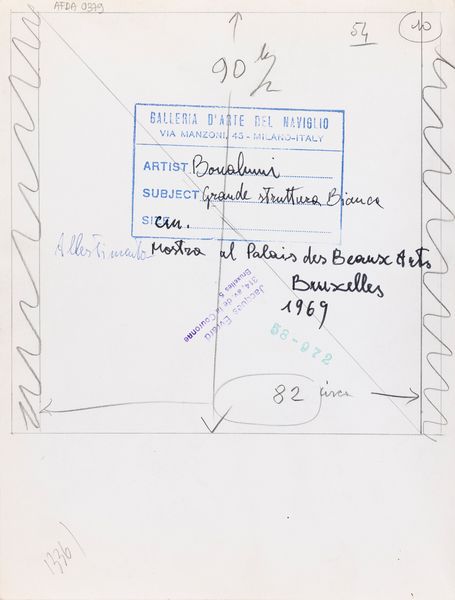 AFDA 0379
54
10
90
GALLERIA D'ARTE DEL NAVIGLIO
VIA MANZONI, 45 - MILANO - ITALY
ARTIST Bonalumi
SUBJECT Grande struttura Bianca
SIZE cm.
Allestimento Mostra al Palais des Beaux Arts
Bruxelles
1969
Jacques Evrard
314, av. de la Couronne
Bruxelles 5
58-972
82 circa
1336